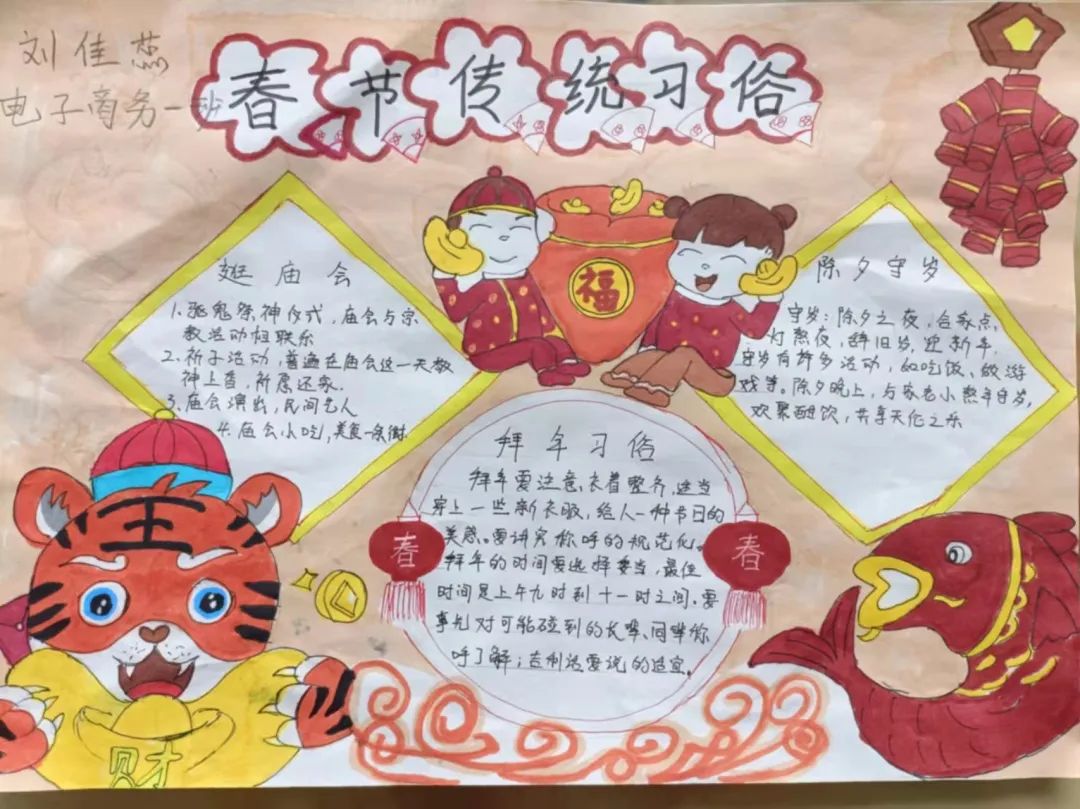 刘佳蕊
电子商务一班
春节传统习俗
逛庙会
1.驱鬼祭神仪式,庙会与宗
教活动相联乐
2.祈子活动,普遍在庙会这一天敬
神上香,祈愿还家.
3.庙会演出,民间艺人
4.庙会小吃,美食一条街
福
除夕守岁
守岁:除夕之夜,合家点
灯熬夜,辞旧岁,迎新年.
守岁有许多活动,如吃饭、做游
戏等。除夕晚上,与家老小熬年守岁,
欢聚酣饮,共享天伦之乐
拜年习俗
拜年要注意衣着整齐,适当
穿上一些新衣服,给人一种节日的
美感。要讲究称呼的规范化。
拜年的时间要选择妥当,最佳
时间是上午九时到十一时之间.要
事先对可能碰到的长辈、同辈称
呼了解;吉利话要说的适宜。
春
春
王
财